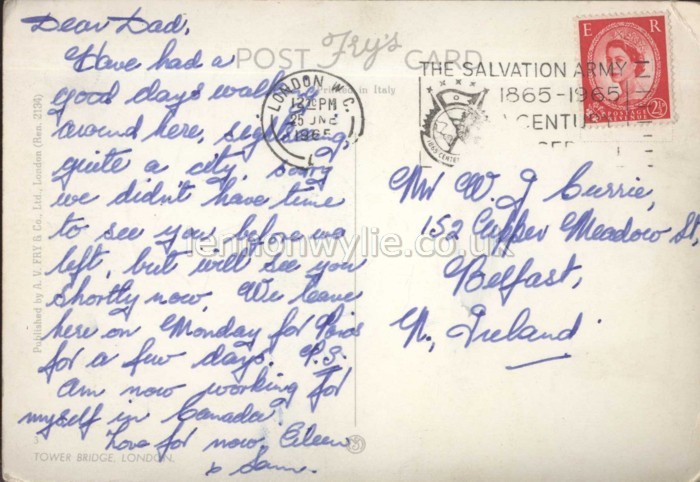 Dear Dad,
Have had a
good days walking
around here, sightseeing,
quite a city, sorry
we didn't have time
to see you before we
left, but will see you
shortly now. We leave
here on Monday for Paris
for a few days. P.S.
Am now working for
myself in Canada
Love for now, Eileen
& Sam.
POST CARD
Fry's
Printed in Italy
LONDON W.C.
12 PM
25 JNE
1965
1
THE SALVATION ARMY
1865-1965
CENTURY
E R
POSTAGE REVENUE
2½D
Mr W. J Currie,
152 Upper Meadow St,
Belfast,
N, Ireland
Published by A. V. FRY & Co., Ltd., London (Res. 2134)
TOWER BRIDGE, LONDON.
lennonwylie.co.uk